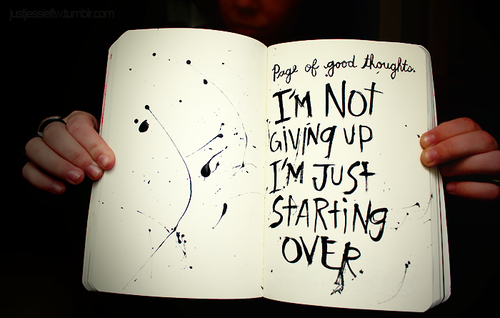 justjessiefw.tumblr.com
Page of good thoughts.
I'M NOT
GIVING UP
I'M JUST
STARTING
OVER.